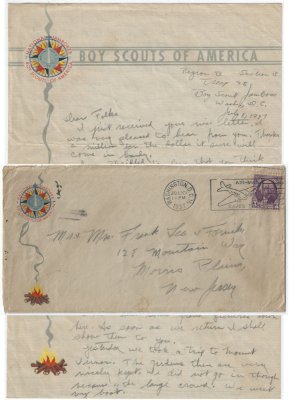 BOY SCOUTS OF AMERICA
Region II Section
Troop 28
Boy Scout Jamboree
Wash., D.C.
July 1, 1937
Dear Folks
I just received your nice letter. I
was very pleased to hear from you. Thanks
a million for the dollar it sure will
come in handy.
that you think
WASHINGTON, D.C.
1 PM
1937
AIR MAIL
SAVES
Mr & Mrs. Frank Lee & Family
128 Mountain Way
Morris Plains,
New Jersey
pictures over
here. As soon as we return I shall
show them to you.
Yesterday we took a trip to Mount
Vernon. The gardens there are very
nicely kept. We did not go in though
because of the large crowd. We went
by boat.